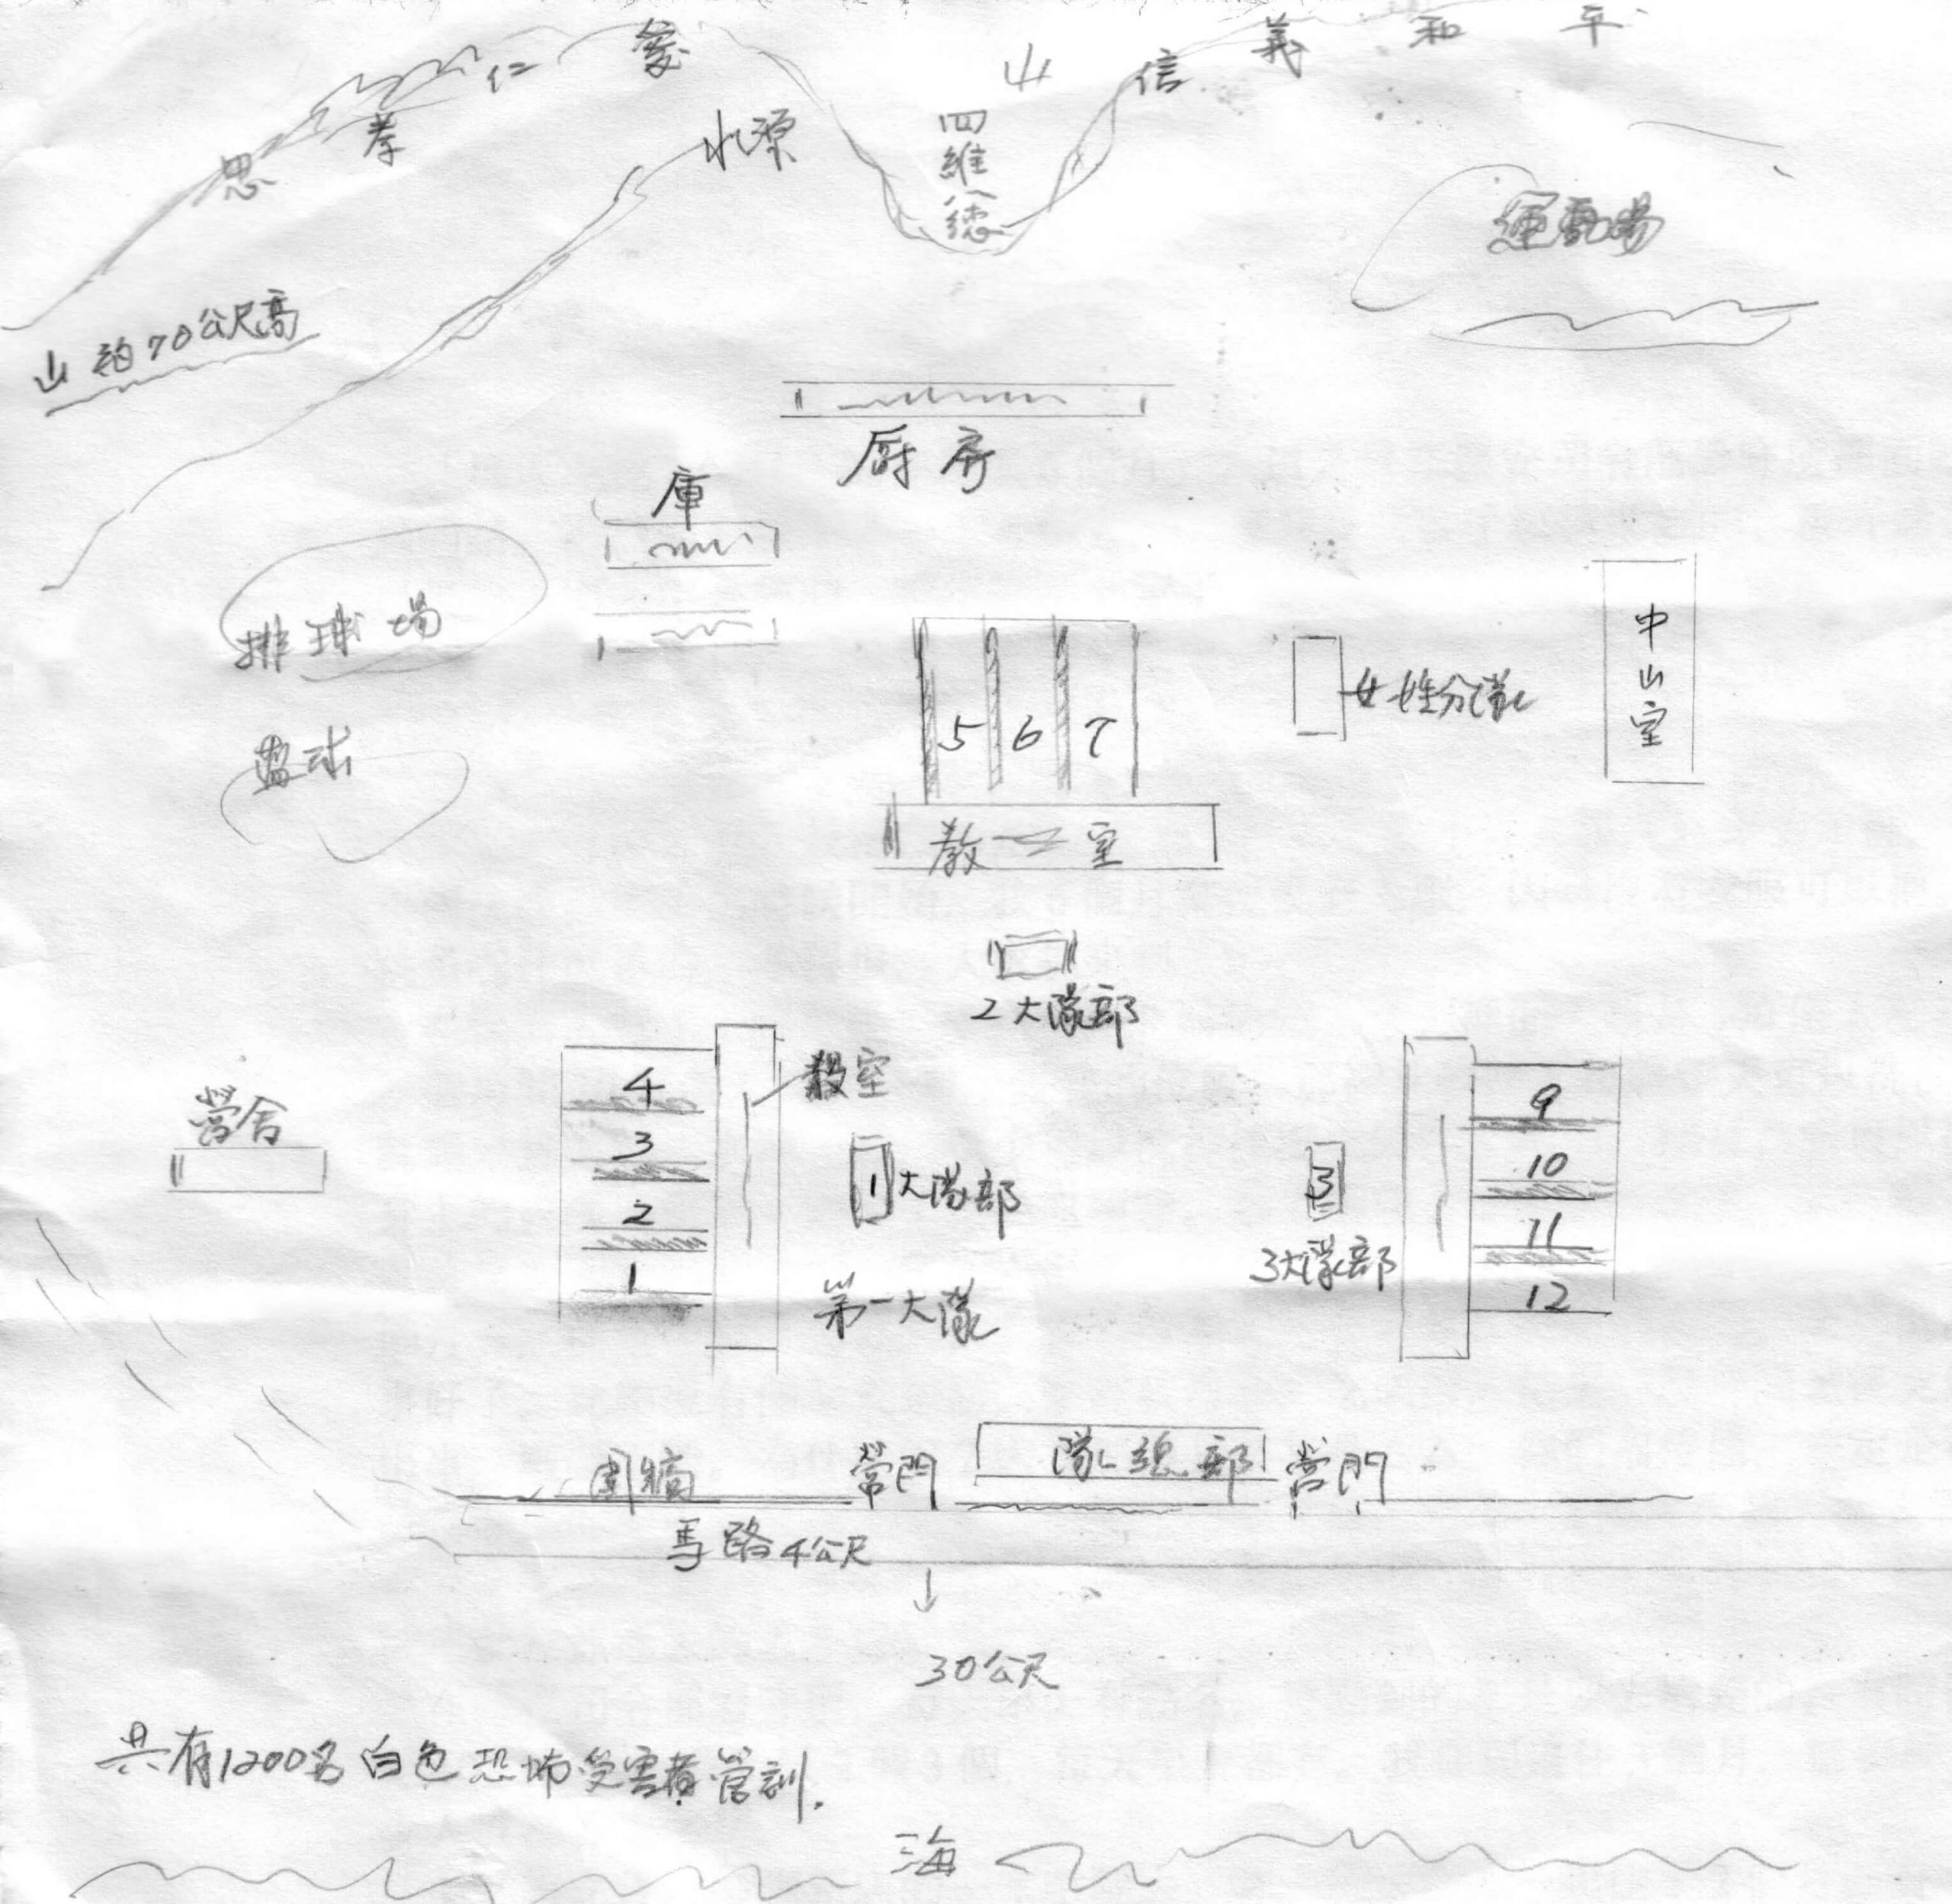 思
孝
仁
愛
山
信
義
和
平
水源
四維八德
運動場
山約70公尺高
厨房
庫
排球場
中山室
女性分隊
籃球
5 6 7
教室
2大隊部
4
3
2
1
教室
營舍
1大隊部
第一大隊
3
3大隊部
9
10
11
12
圍牆
營門
隊總部
營門
馬路4公尺
30公尺
共有1200名白色恐怖受害者管訓.
海